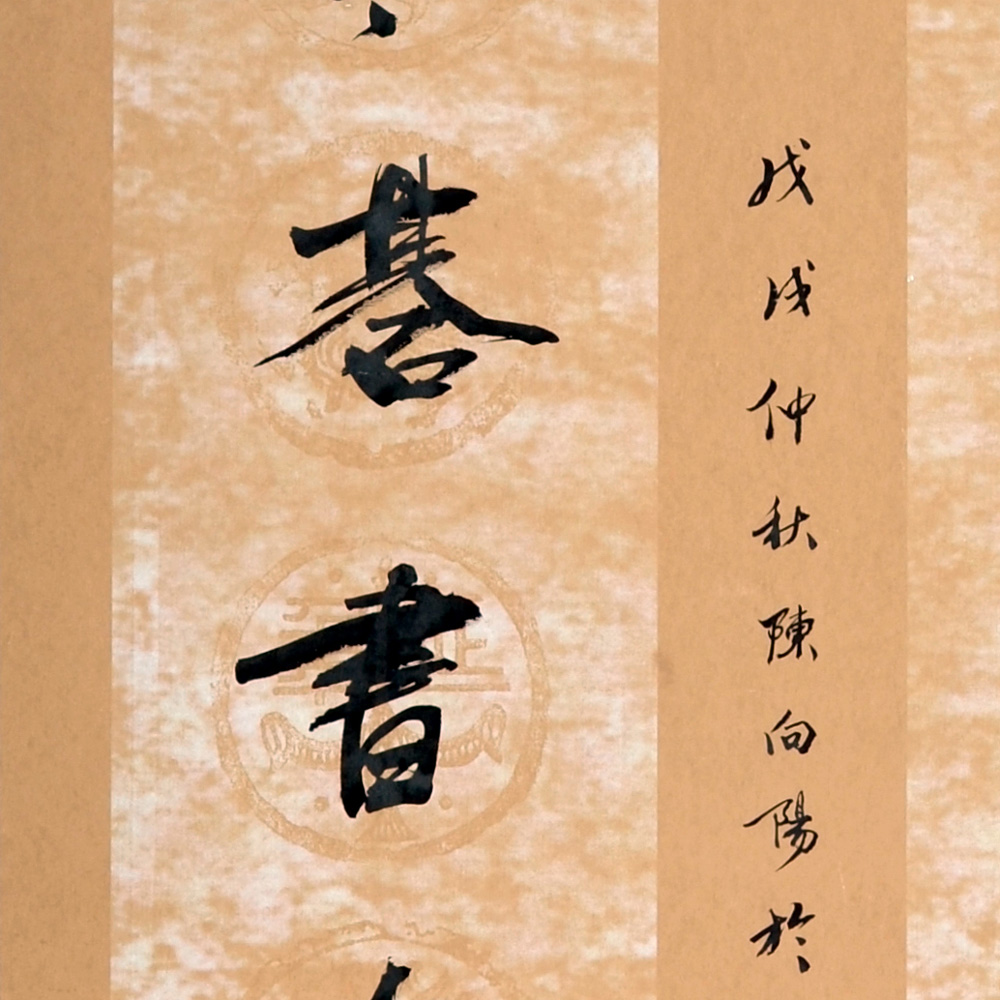 戊戌仲秋陳向陽於
碁書